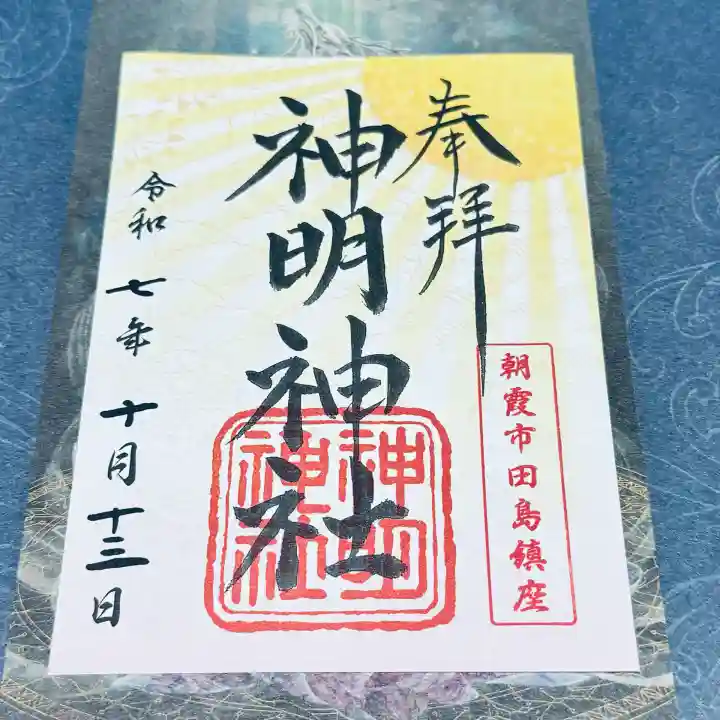 奉拝
朝霞市田島鎮座
神明神社
神明
神社
令和七年十月十三日